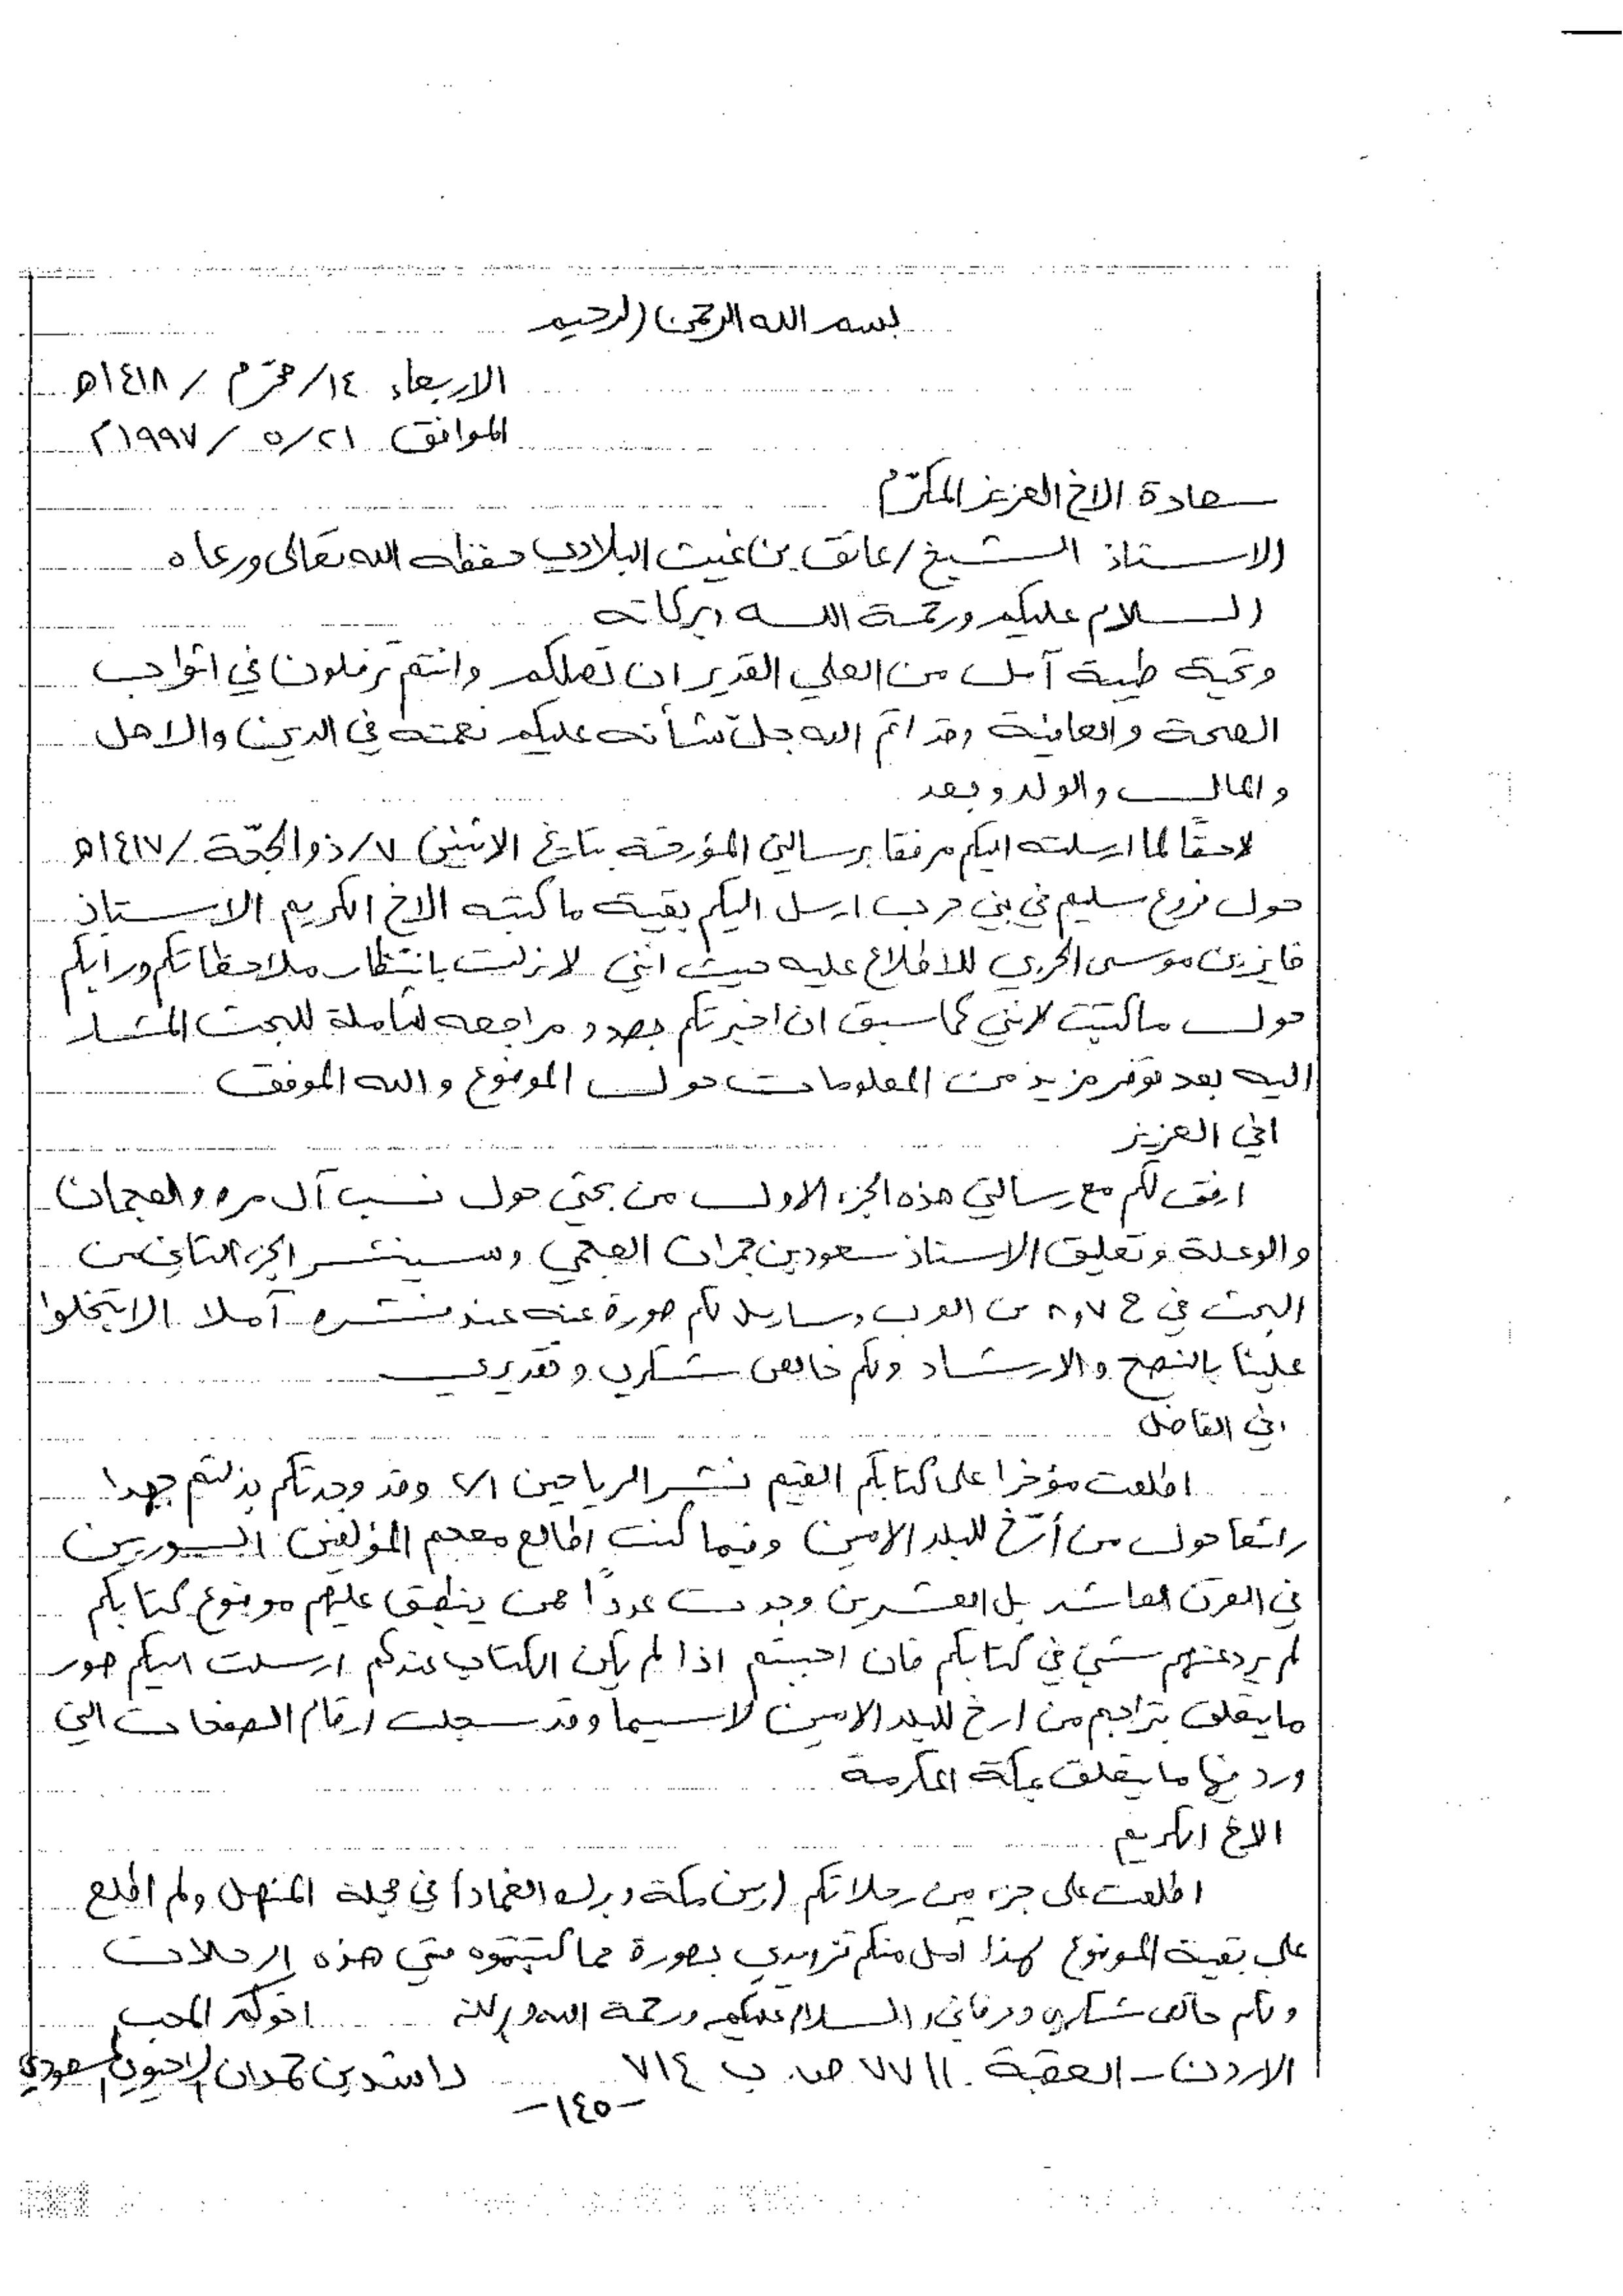 بسم الله الرحمن الرحيم
الاربعاء ١٤/ محرّم / ١٤١٨هـ
الموافق ٢١/ ٥/ ١٩٩٧م
سعادة الاخ العزيز المكرّم
الاستاذ الشيخ / عاتق بن غيث البلادي حفظه الله تعالى ورعاه
السلام عليكم ورحمة الله وبركاته
وتحية طيبة آمل من العلي القدير ان تصلكم وانتم ترفلون في اثواب
الصحة والعافية وقد اتم الله جلّ شأنه عليكم نعمته في الدين والاهل
والمال والولد وبعد
لاحقًا لما ارسلته اليكم مرفقا برسالتي المؤرخة بتاريخ الاثنين ٧/ ذو الحجّة / ١٤١٧هـ
حول فروع سليم في بني حرب ارسل اليكم بقية ما كتبه الاخ الكريم الاستاذ
فايز بن موسى الحربي للاطلاع عليه حيث انني لازلت بانتظار ملاحظاتكم ورأيكم
حول ما كتبت لانني كما سبق ان اخبرتكم بصدد مراجعه شاملة للبحث المشار
اليه بعد توفر مزيد من المعلومات حول الموضوع والله الموفق
اخي العزيز
ارفق لكم مع رسالتي هذه الجزء الاول من بحثي حول نسب آل مره والعجمان
والوعلة وتعليق الاستاذ سعود بن جمران العجمي وسينشر الجزء الثاني من
البحث في ج ٨،٧ من العرب وسارسل لكم صورة عنه عند نشره آملا الا تبخلوا
علينا بالنصح والارشاد ولكم خالص شكري وتقديري
اخي الفاضل
اطلعت مؤخرا على كتابكم القيم نشر الرياحين ٢/١ وقد وجدتكم بذلتم جهدا
رائعا حول من أرّخ للبلد الامين وفيما كنت اطالع معجم المؤلفين السوريين
في القرن العاشر بل العشرين وجدت عددًا ممن ينطبق عليهم موضوع كتابكم
لم يرد عنهم شيئ في كتابكم فان احببتم اذا لم يكن الكتاب عندكم ارسلت اليكم صور
ما يتعلق بتراجم من ارخ للبلد الامين لاسيما وقد سجلت ارقام الصفحات التي
ورد فيها ما يتعلق بمكة المكرمة
الاخ الكريم
اطلعت على جزء من رحلاتكم (بين مكة وبرك الغماد) في مجلة المنهل ولم اطلع
على بقية الموضوع لهذا آمل منكم تزويدي بصورة مما كتبتموه حتى هذه الرحلات
ولكم خالص شكري وعرفاني والسلام عليكم ورحمة الله وبركاته اخوكم المحب
الاردن - العقبة ٧٧١١٠ ص. ب ٧١٤ راشد بن حمدان الاحيوي المسعودي
-١٤٥-